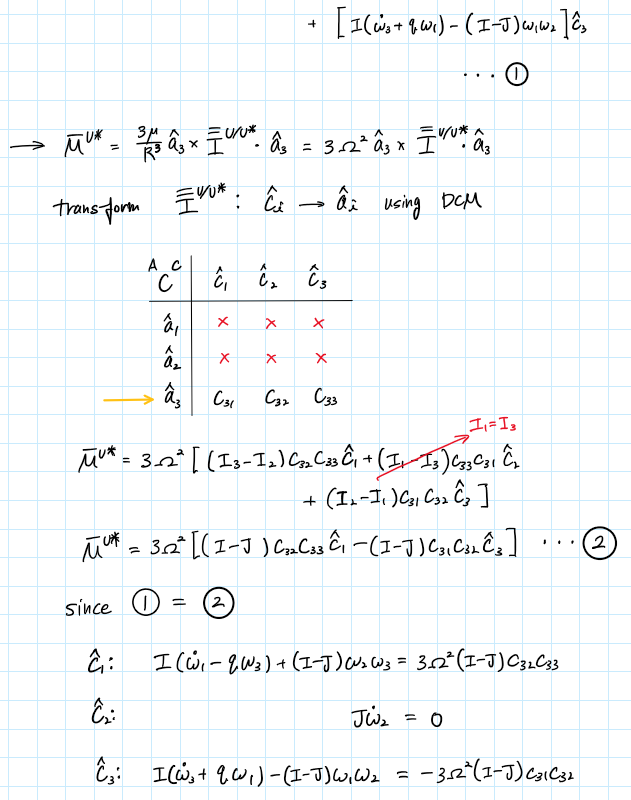 + [ I(ω̇₃ + qω₁) – (I–J)ω₁ω₂ ] ĉ₃
... ①
→ M̄^U* = 3μ/R³ â₃ × I̿^U/U* · â₃ = 3Ω² â₃ × I̿^U/U* · â₃
transform I̿^U/U* : ĉᵢ → âᵢ using DCM
ᴬC^C ĉ₁ ĉ₂ ĉ₃
â₁ × × ×
â₂ × × ×
→ â₃ C₃₁ C₃₂ C₃₃
I₁ = I₃
M̄^U* = 3Ω² [ (I₃–I₂)C₃₂C₃₃ĉ₁ + (I₁–I₃)C₃₃C₃₁ĉ₂
+ (I₂–I₁)C₃₁C₃₂ĉ₃ ]
M̄^U* = 3Ω² [ (I–J)C₃₂C₃₃ĉ₁ – (I–J)C₃₁C₃₂ĉ₃ ] ... ②
since ① = ②
ĉ₁: I(ω̇₁ – qω₃) + (I–J)ω₂ω₃ = 3Ω²(I–J)C₃₂C₃₃
ĉ₂: Jω̇₂ = 0
ĉ₃: I(ω̇₃ + qω₁) – (I–J)ω₁ω₂ = –3Ω²(I–J)C₃₁C₃₂